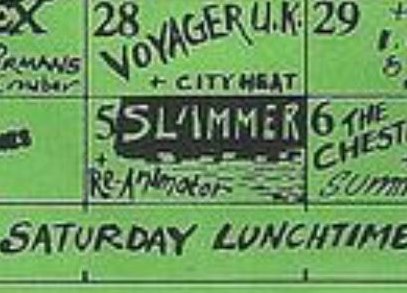 EX
28
VOYAGER U.K.
+ CITY HEAT
29
+
5
SLAMMER
+
Re-Animator
6
THE
CHEST
SUMM
SATURDAY LUNCHTIME